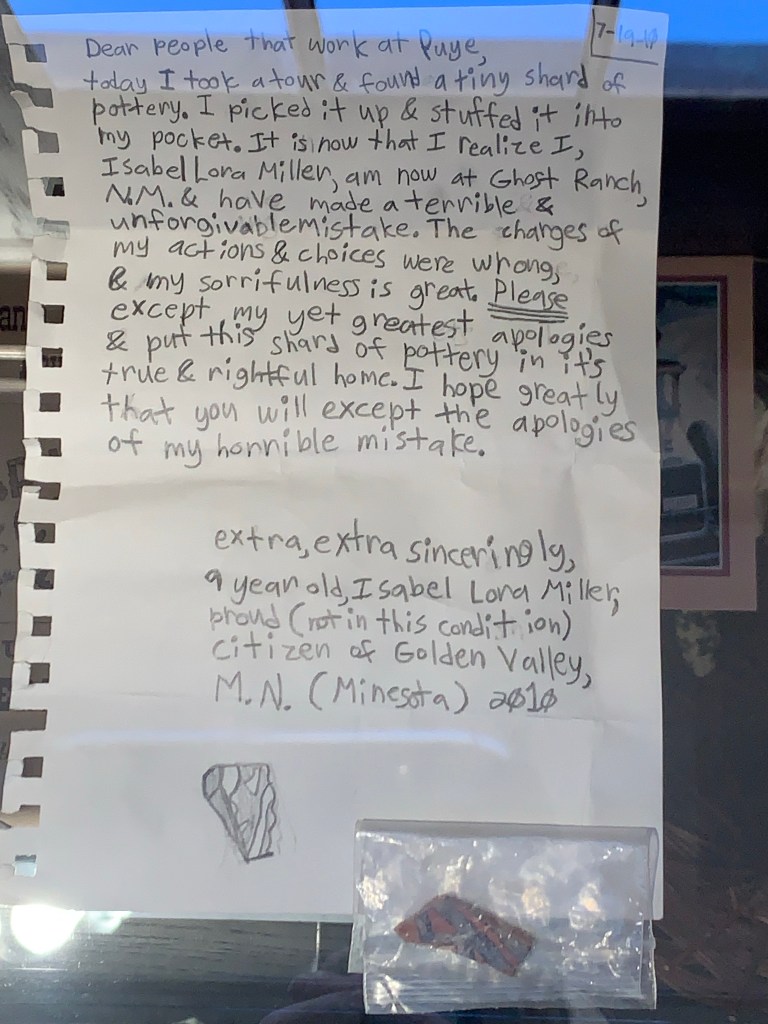 7-19-10
Dear people that work at Puye,
today I took a tour & found a tiny shard of
pottery. I picked it up & stuffed it into
my pocket. It is now that I realize I,
Isabel Lora Miller, am now at Ghost Ranch,
N.M. & have made a terrible &
unforgivable mistake. The charges of
my actions & choices were wrong,
& my sorrifulness is great. Please
except my yet greatest apologies
& put this shard of pottery in it's
true & rightful home. I hope greatly
that you will except the apologies
of my horrible mistake.
extra, extra sinceringly,
9 year old, Isabel Lora Miller,
proud (not in this condition)
citizen of Golden Valley,
M.N. (Minesota) 2010